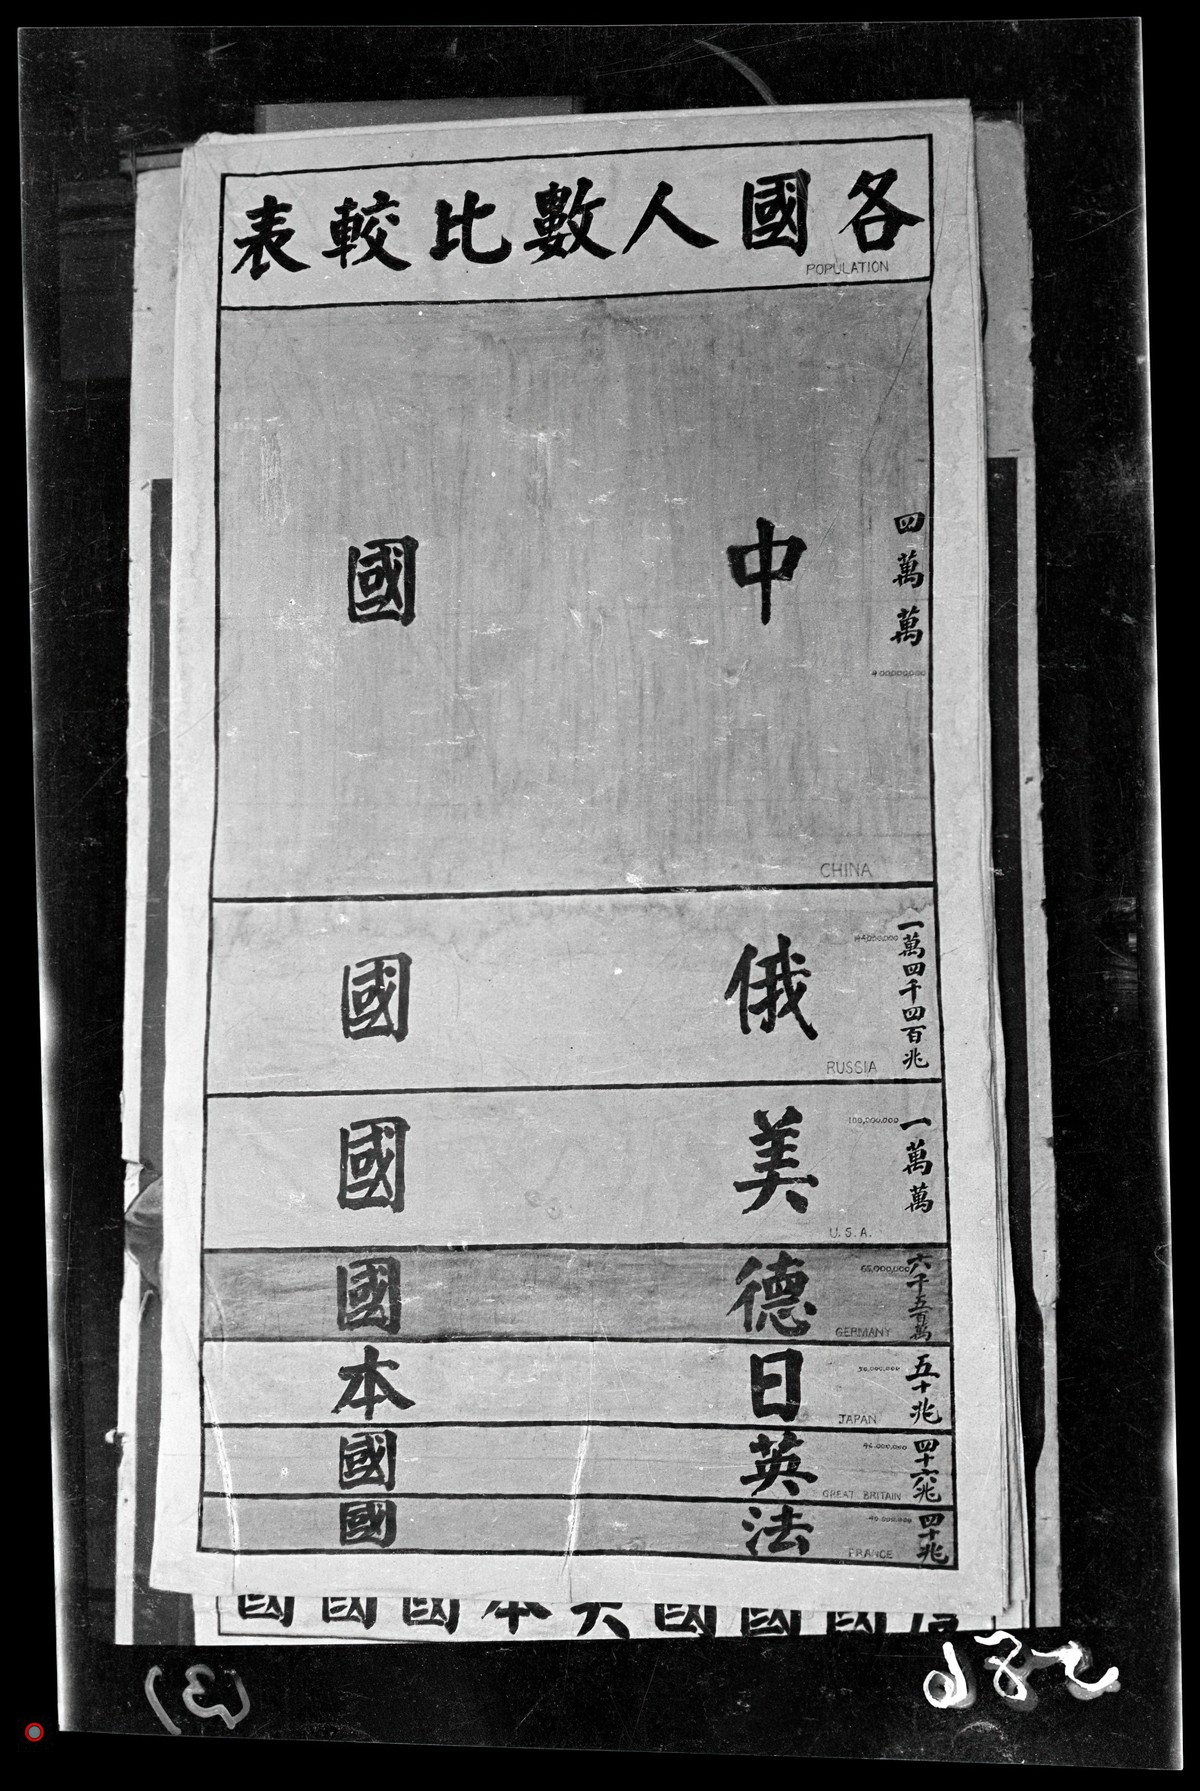 各國人數比較表
POPULATION
中國
四萬萬
400000000
CHINA
俄國
一萬四千四百兆
144,000,000
RUSSIA
美國
一萬萬
100,000,000
U.S.A.
德國
六千五百萬
65,000,000
GERMANY
日本
五十兆
50,000,000
JAPAN
英國
四十六兆
46,000,000
GREAT BRITAIN
法國
四十兆
40,000,000
FRANCE
(3)